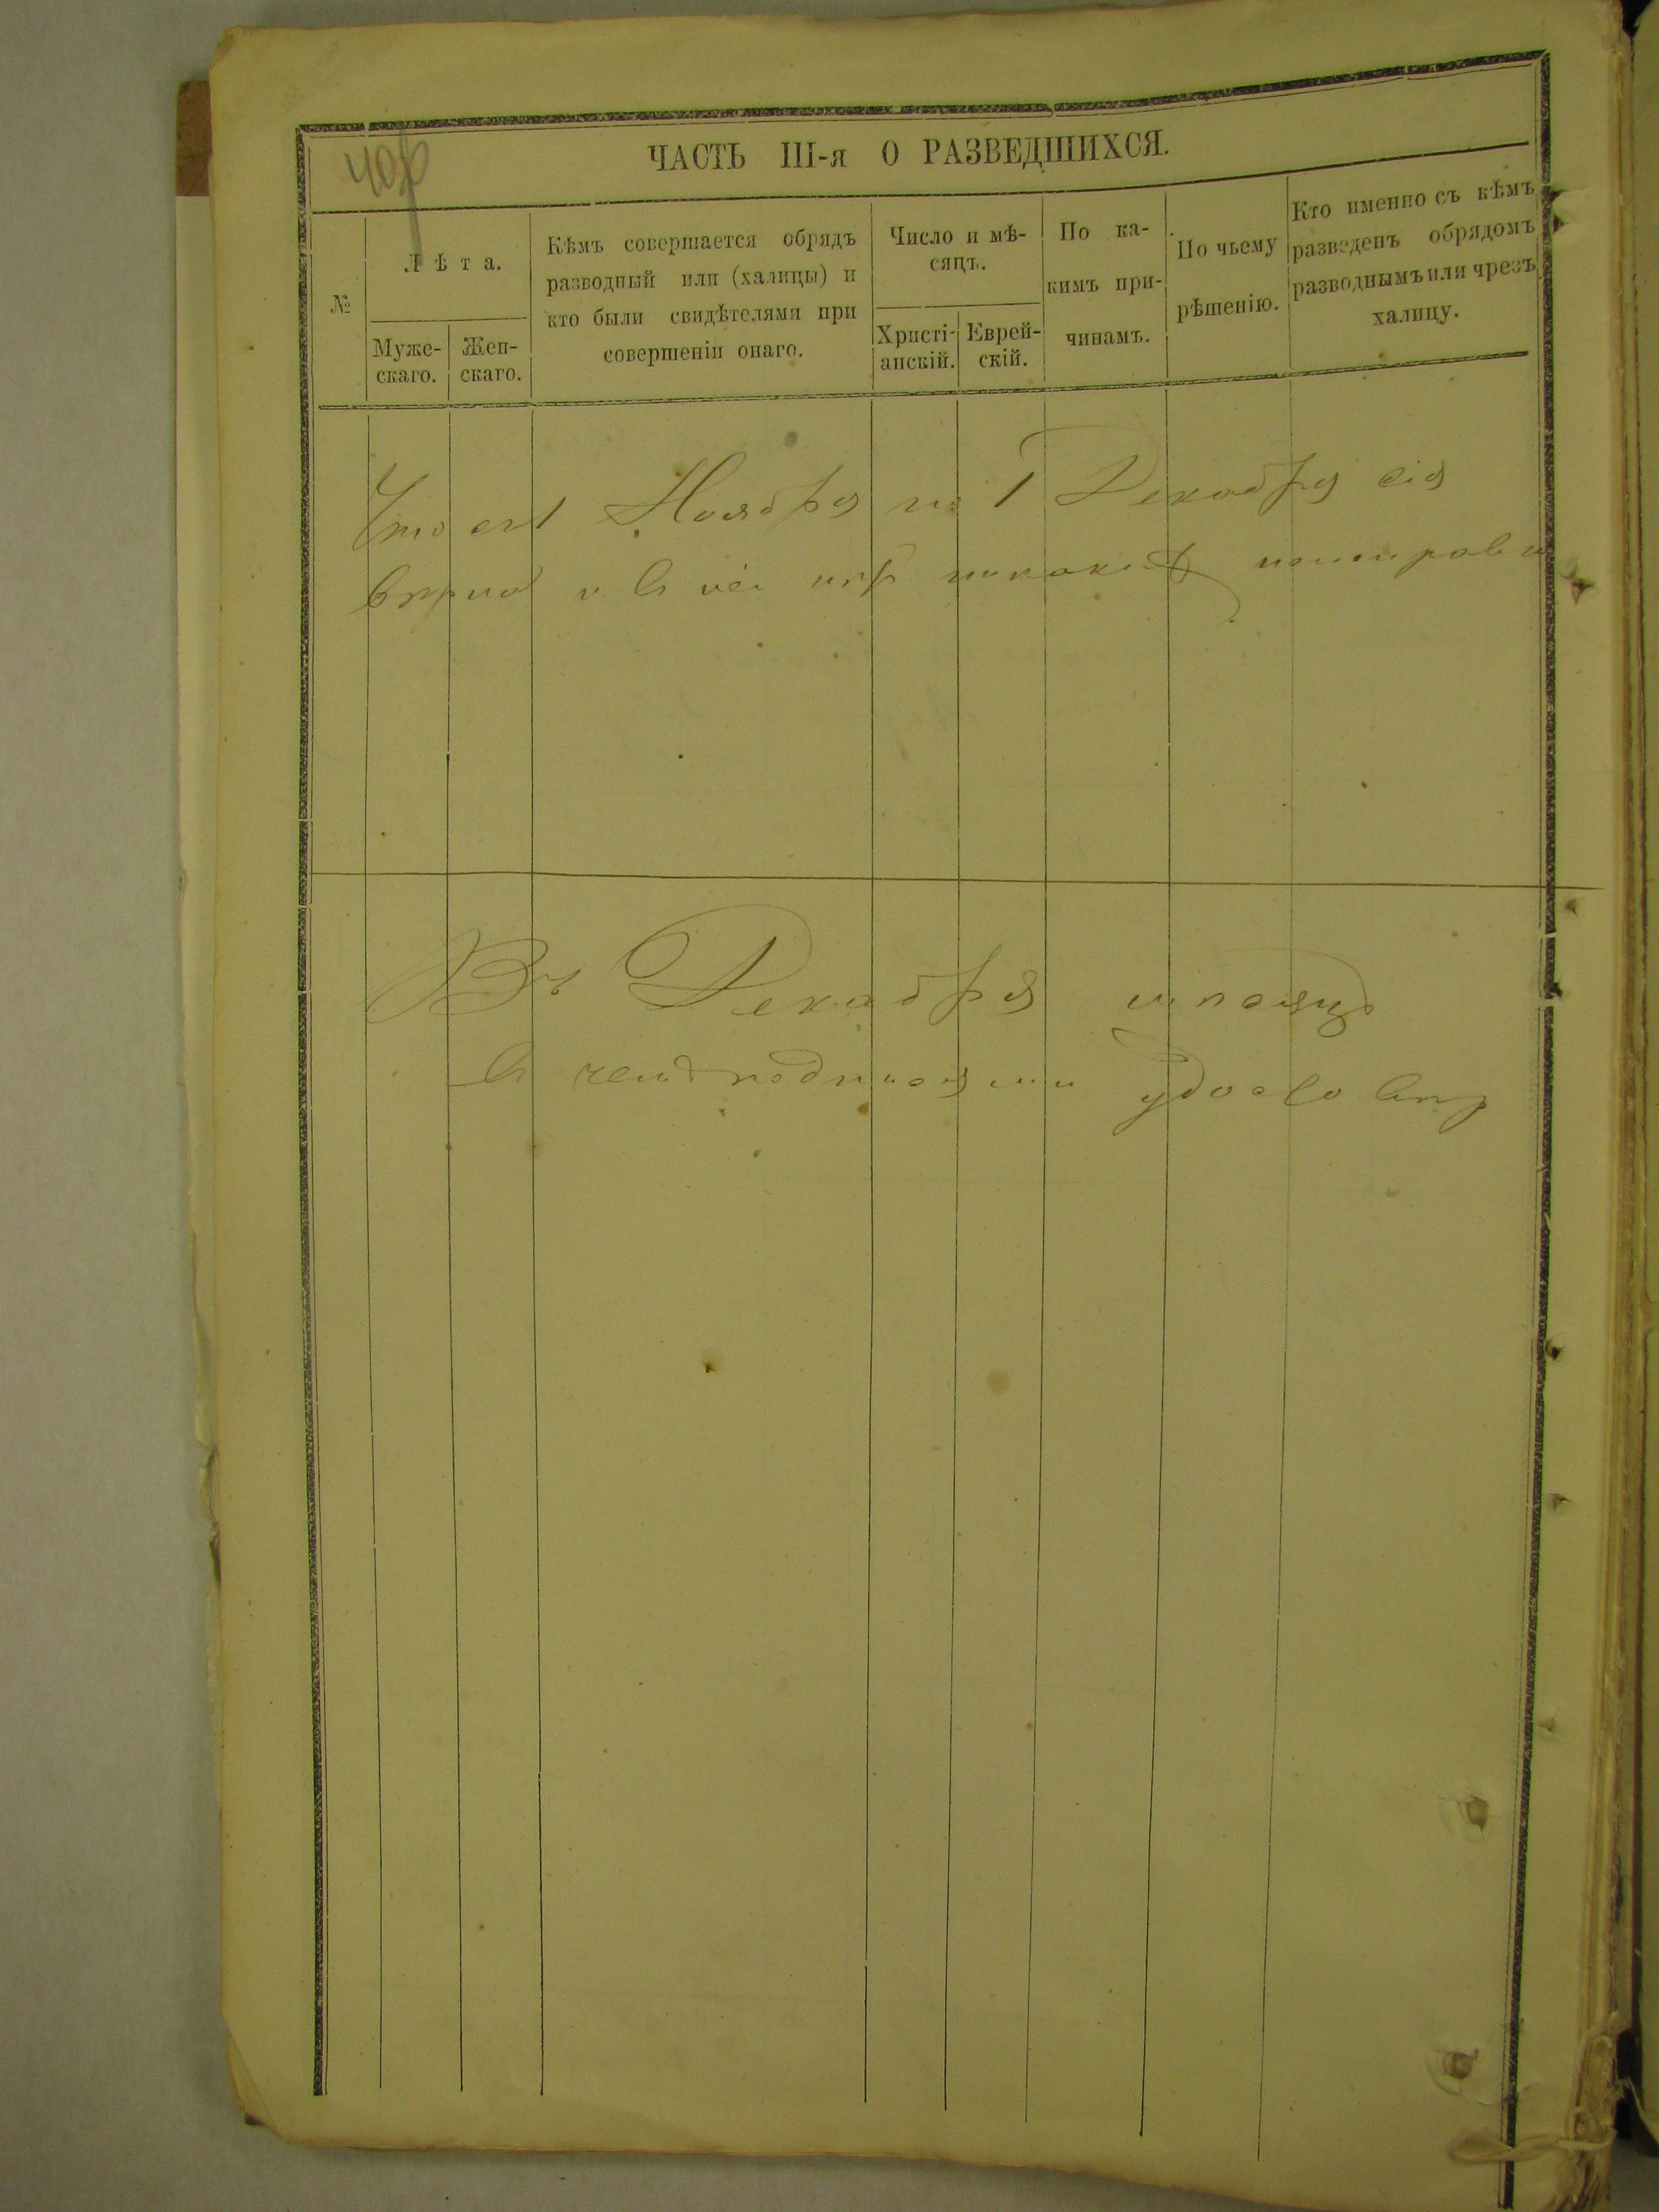 ЧАСТЬ III-я О РАЗВЕДШИХСЯ.
№
Лѣта.
Муже-
скаго.
Жен-
скаго.
Кѣмъ совершается обрядъ
разводный или (халицы) и
кто были свидѣтелями при
совершеніи онаго.
Число и мѣ-
сяцъ.
Христі-
анскій.
Еврей-
скій.
По ка-
кимъ при-
чинамъ.
По чьему
рѣшенію.
Кто именно съ кѣмъ
разведенъ обрядомъ
разводнымъ или чрезъ
халицу.
Что съ 1 Ноября по 1 Декабря сія
вѣрна и въ ней нѣтъ никакихъ
Въ Декабря мѣсяцѣ
въ чемъ подписями удосто вѣр